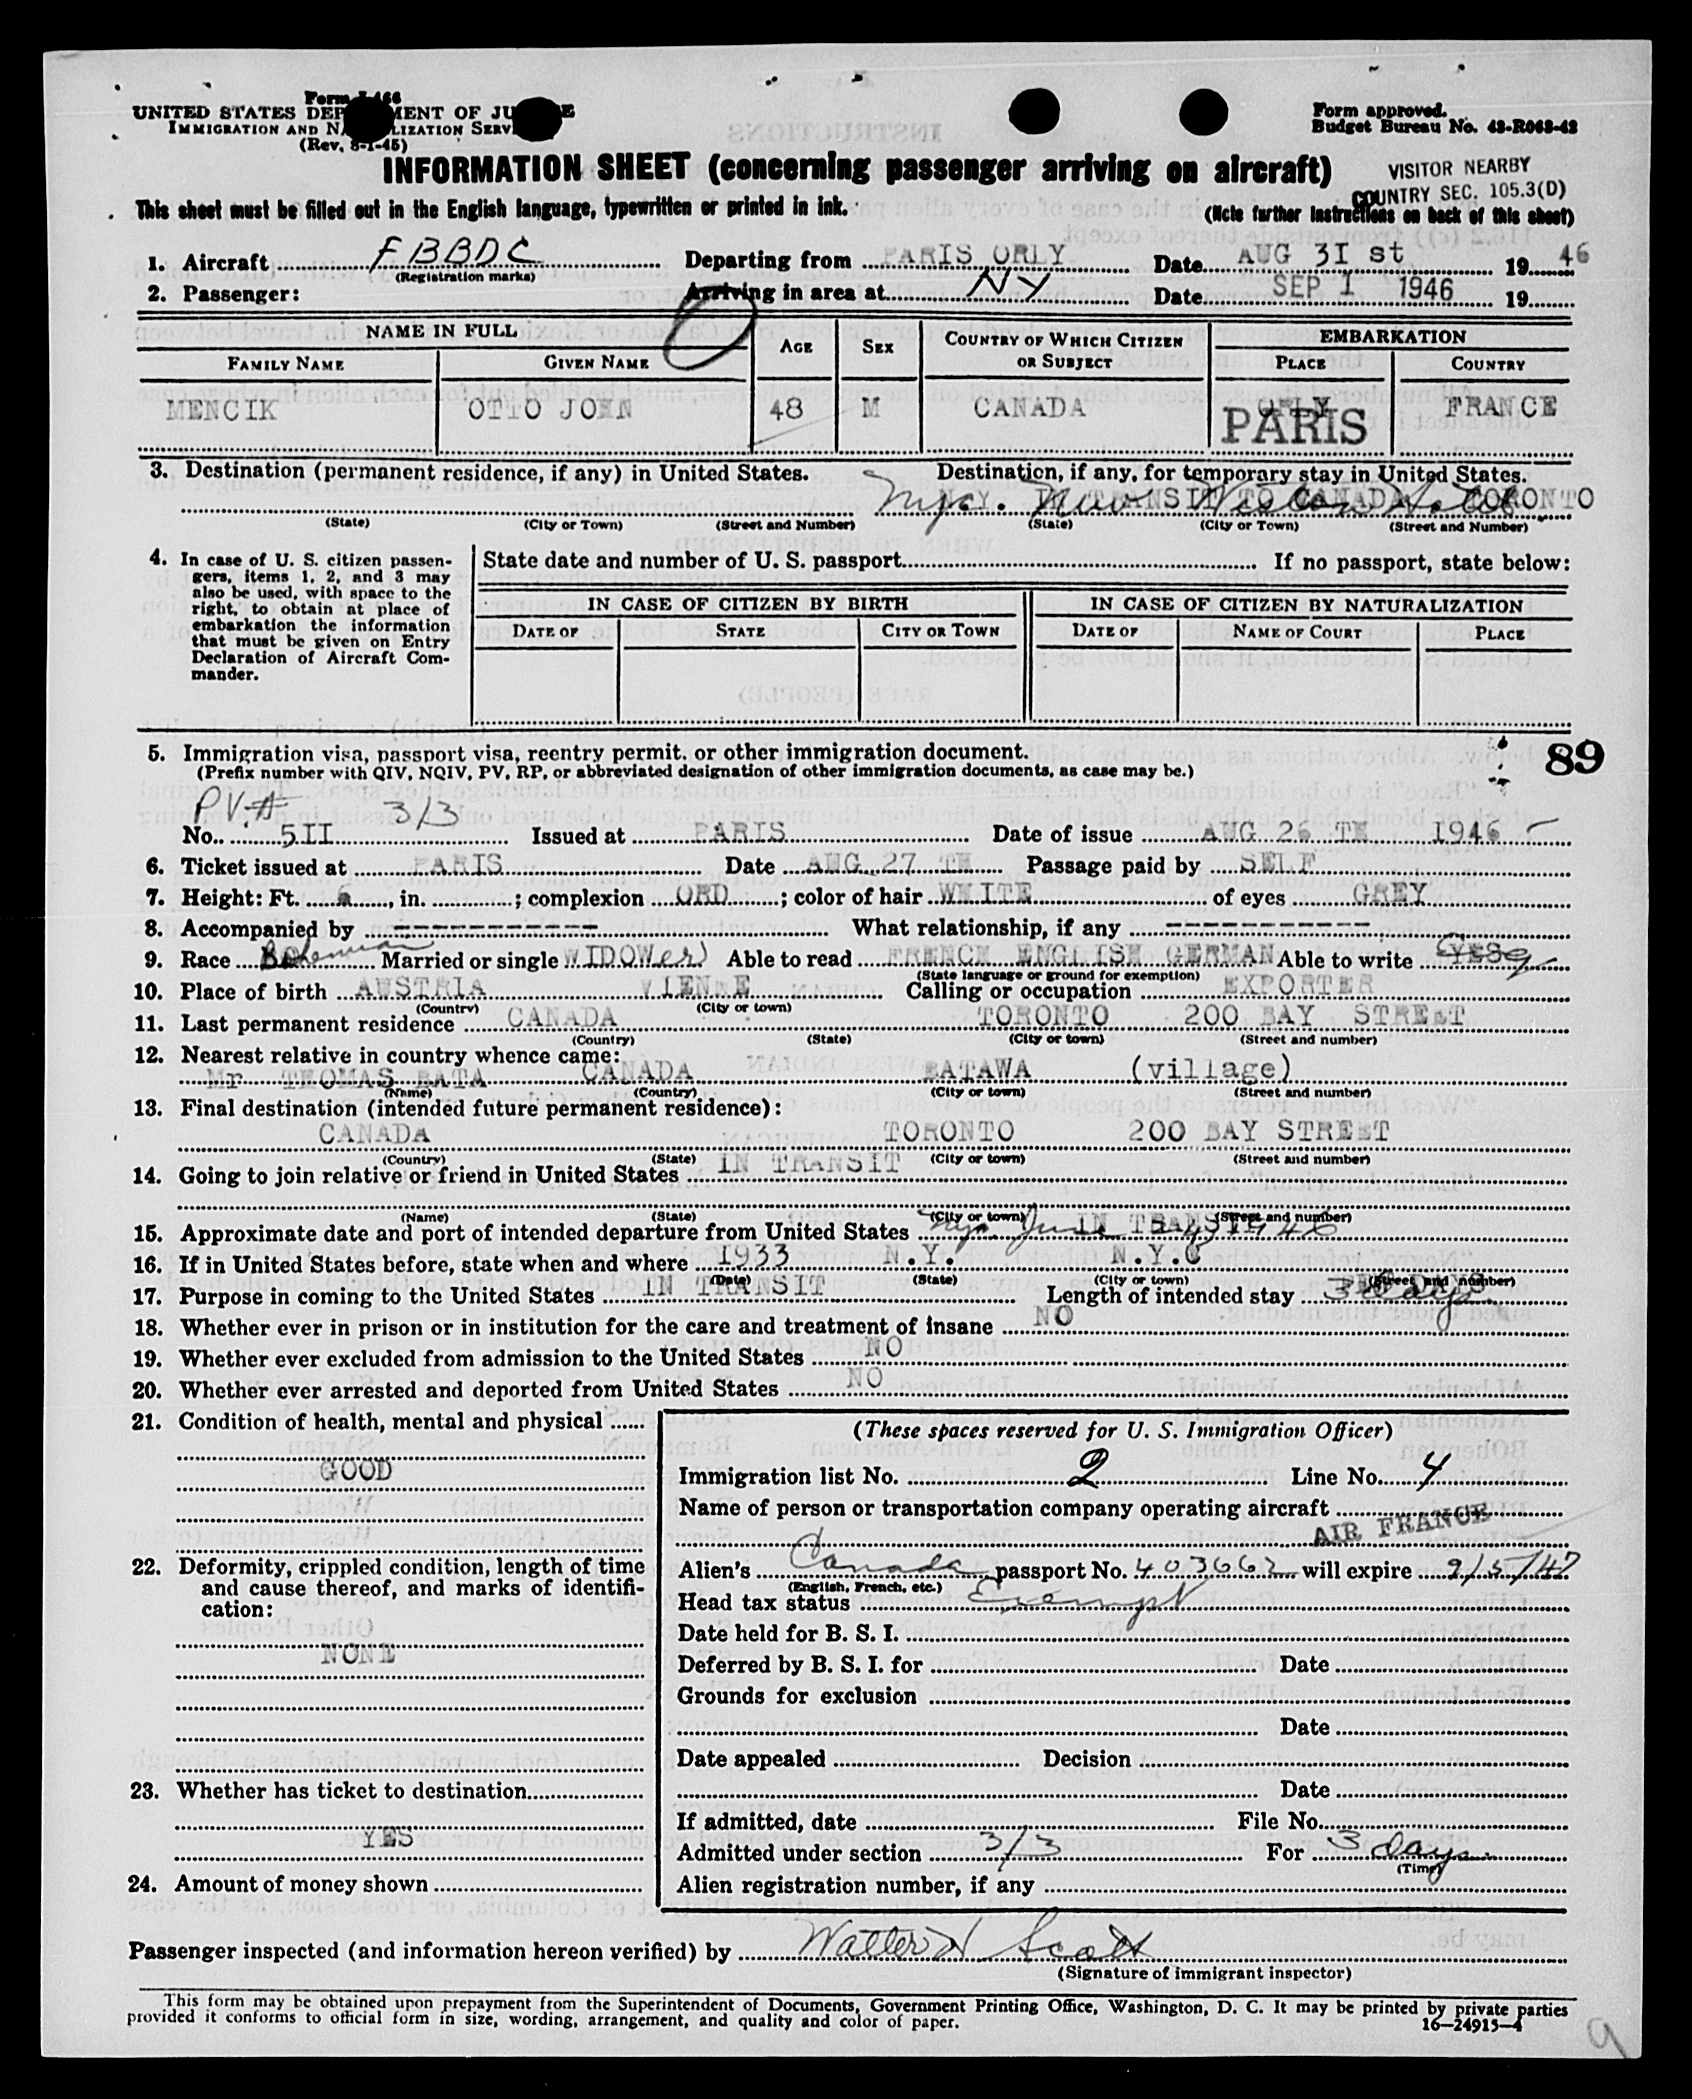 Form I-466
UNITED STATES DEPARTMENT OF JUSTICE
IMMIGRATION AND NATURALIZATION SERVICE
(Rev. 8-1-45)
Form approved.
Budget Bureau No. 43-R063-42
INFORMATION SHEET (concerning passenger arriving on aircraft)
VISITOR NEARBY
COUNTRY SEC. 105.3(D)
This sheet must be filled out in the English language, typewritten or printed in ink.
(Note further instructions on back of this sheet)
1. Aircraft F BBDC Departing from PARIS ORLY Date AUG 3I st 1946
(Registration marks)
2. Passenger: Arriving in area at NY Date SEP 1 1946 19
NAME IN FULL AGE SEX COUNTRY OF WHICH CITIZEN OR SUBJECT EMBARKATION
FAMILY NAME GIVEN NAME PLACE COUNTRY
MENCIK OTTO JOHN 48 M CANADA ORLY FRANCE
PARIS
3. Destination (permanent residence, if any) in United States. Destination, if any, for temporary stay in United States.
N.Y. IN TRANSIT TO CANADA TORONTO
(State) (City or Town) (Street and Number) (State) (City or Town) (Street and Number)
4. In case of U. S. citizen passen-
gers, items 1, 2, and 3 may
also be used, with space to the
right, to obtain at place of
embarkation the information
that must be given on Entry
Declaration of Aircraft Com-
mander.
State date and number of U. S. passport If no passport, state below:
IN CASE OF CITIZEN BY BIRTH IN CASE OF CITIZEN BY NATURALIZATION
DATE OF STATE CITY OR TOWN DATE OF NAME OF COURT PLACE
5. Immigration visa, passport visa, reentry permit, or other immigration document.
89
(Prefix number with QIV, NQIV, PV, RP, or abbreviated designation of other immigration documents, as case may be.)
PV # 3/3
No. 5II Issued at PARIS Date of issue AUG 26 TH 1946
6. Ticket issued at PARIS Date AUG 27 TH Passage paid by SELF
7. Height: Ft. 6, in. ; complexion ORD ; color of hair WHITE of eyes GREY
8. Accompanied by ------------ What relationship, if any ------------
9. Race Bohemian Married or single WIDOWer Able to read FRENCH ENGLISH GERMAN Able to write YES
(State language or ground for exemption)
10. Place of birth AUSTRIA VIENNE Calling or occupation EXPORTER
(Country) (City or town)
11. Last permanent residence CANADA TORONTO 200 BAY STREET
(Country) (State) (City or town) (Street and number)
12. Nearest relative in country whence came:
Mr THOMAS BATA CANADA BATAWA (village)
(Name) (Country) (City or town) (Street and number)
13. Final destination (intended future permanent residence):
CANADA TORONTO 200 BAY STREET
(Country) (State) (City or town) (Street and number)
14. Going to join relative or friend in United States IN TRANSIT
(Name) (State) (City or town) (Street and number)
15. Approximate date and port of intended departure from United States IN TRANSIT
16. If in United States before, state when and where 1933 N.Y. N.Y.C
(Date) (State) (City or town) (Street and number)
17. Purpose in coming to the United States IN TRANSIT Length of intended stay 3 days
18. Whether ever in prison or in institution for the care and treatment of insane NO
19. Whether ever excluded from admission to the United States NO
20. Whether ever arrested and deported from United States NO
21. Condition of health, mental and physical
GOOD
22. Deformity, crippled condition, length of time
and cause thereof, and marks of identifi-
cation:
NONE
23. Whether has ticket to destination
YES
24. Amount of money shown
(These spaces reserved for U. S. Immigration Officer)
Immigration list No. 2 Line No. 4
Name of person or transportation company operating aircraft
AIR FRANCE
Alien's Canada passport No. 403662 will expire 9/5/47
(English, French, etc.)
Head tax status Exempt
Date held for B. S. I.
Deferred by B. S. I. for Date
Grounds for exclusion
Date
Date appealed Decision
Date
If admitted, date File No.
Admitted under section 3/3 For 3 days
(Time)
Alien registration number, if any
Passenger inspected (and information hereon verified) by Walter H Scott
(Signature of immigrant inspector)
This form may be obtained upon prepayment from the Superintendent of Documents, Government Printing Office, Washington, D. C. It may be printed by private parties
provided it conforms to official form in size, wording, arrangement, and quality and color of paper.
16—24915-4
9